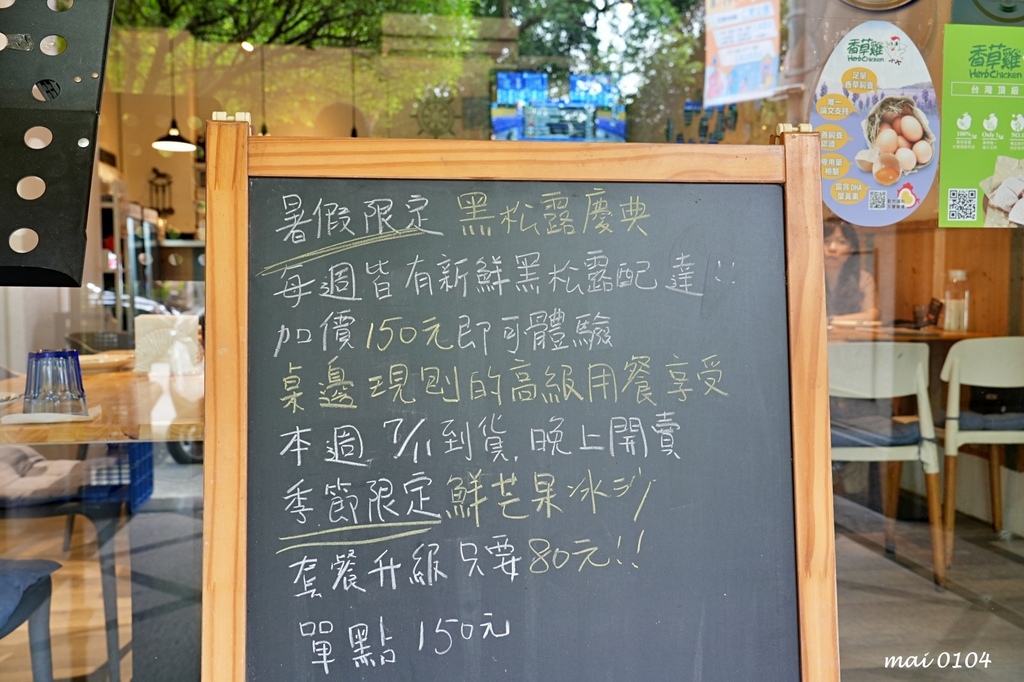 暑假限定 黑松露慶典
每週皆有新鮮黑松露配達!!
加價150元即可體驗
桌邊現刨的高級用餐享受
本週7/1到貨.晚上開賣
季節限定鮮芒果冰沙
套餐升級只要80元!!
單點150元
香草雞
HerbChicken
香草雞
HerbChicken
台灣頂級
100%
mai 0104